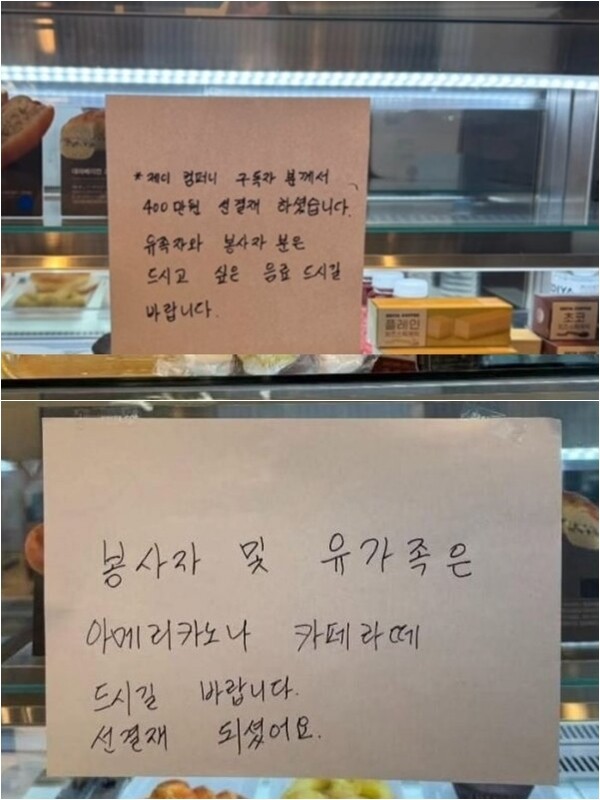 * 제디 컴퍼니 구독자 분께서
400만원 선결재 하셨습니다.
유족자와 봉사자 분은
드시고 싶은 음료 드시길
바랍니다.
플레인
초코
봉사자 및 유가족은
아메리카노나 카페라떼
드시길 바랍니다.
선결재 되셨어요.